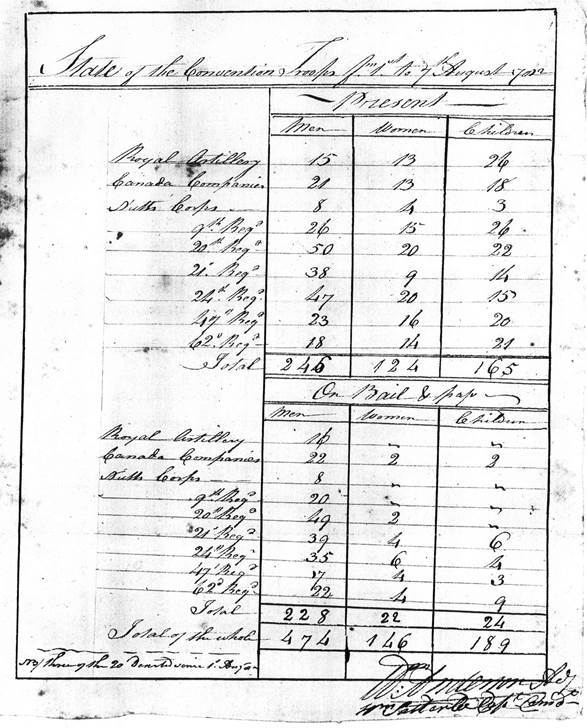 State of the Convention Troops fm 1st to 7th August
Present
Men Women Children
Royal Artillery 15 13 26
Canada Companies 21 13 18
Nutts Corps 8 4 3
9th Regt 26 15 26
20th Regt 50 20 22
21t Regt 38 9 14
24th Regt 47 20 15
47th Regt 23 16 20
62d Regt 18 14 21
Total 246 124 165
On Bail & pap
Men Women Children
Royal Artillery 16 " "
Canada Companies 22 2 2
Nutts Corps 8 " "
9th Regt 20 " "
20th Regt 49 2 "
21t Regt 39 4 6
24th Regt 35 6 4
47t Regt 17 4 3
62d Regt 22 4 9
Total 228 22 24
Total of the whole 474 146 189
three of the 20 since 1t
Wm Anderson Adj